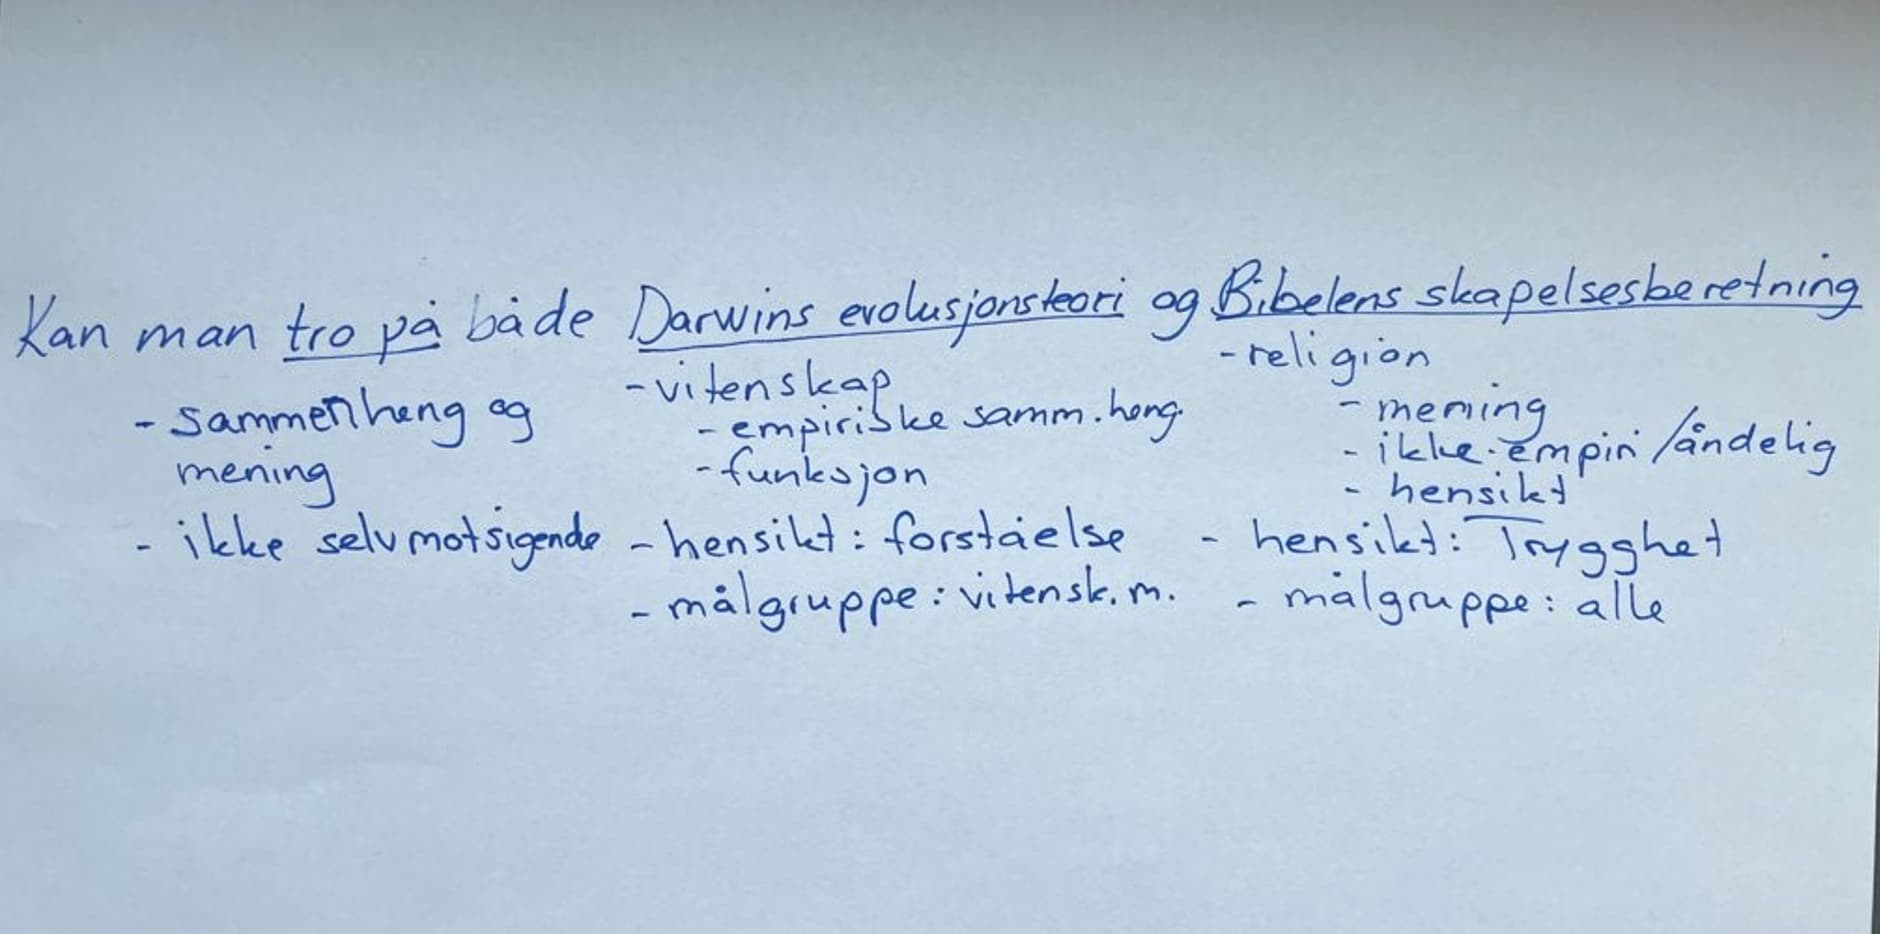 Kan man tro på både Darwins evolusjonsteori og Bibelens skapelsesberetning
- sammenheng og
mening
- ikke selvmotsigende
- vitenskap
- empiriske samm.heng.
- funksjon
- hensikt: forståelse
- målgruppe: vitensk.m.
- religion
- mening
- ikke-empiri /åndelig
- hensikt
- hensikt: Trygghet
- målgruppe: alle